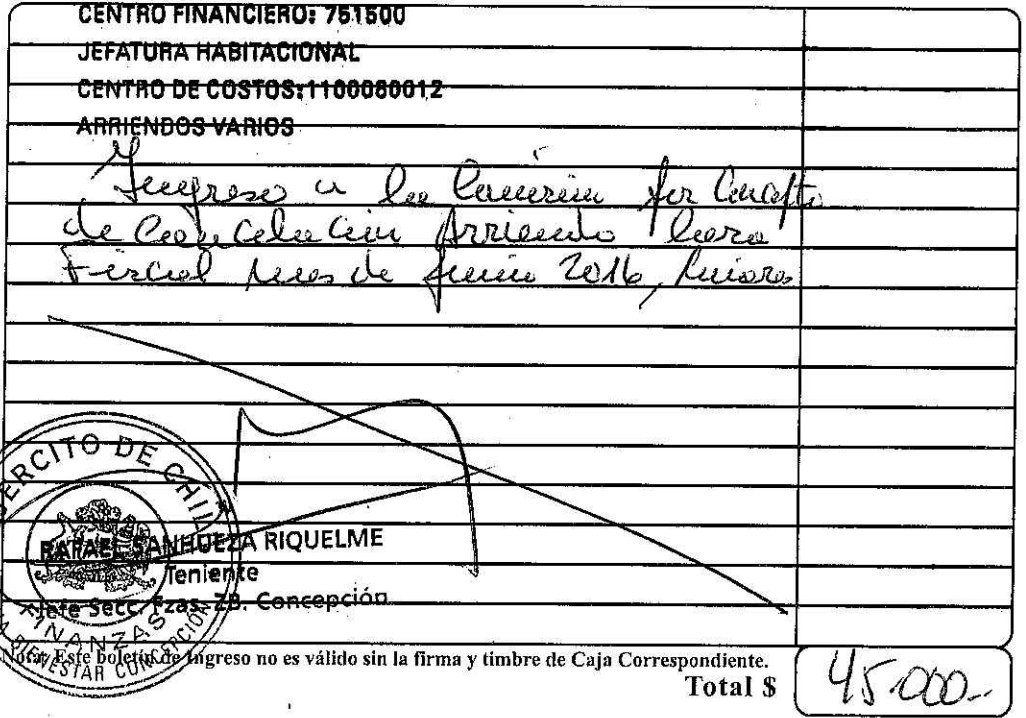 CENTRO FINANCIERO: 751500
JEFATURA HABITACIONAL
CENTRO DE COSTOS:1100080012
ARRIENDOS VARIOS
Ingreso a la por Concepto
de Cancelación Arriendo
Fiscal mes de Junio 2016,
EJERCITO DE CHILE
RAFAEL SANHUEZA RIQUELME
Teniente
Jefe Secc. Fzas. ZB. Concepción
FINANZAS
BIENESTAR CONCEPCIÓN
Nota: Este boletín de Ingreso no es válido sin la firma y timbre de Caja Correspondiente.
Total $ 45.000.-